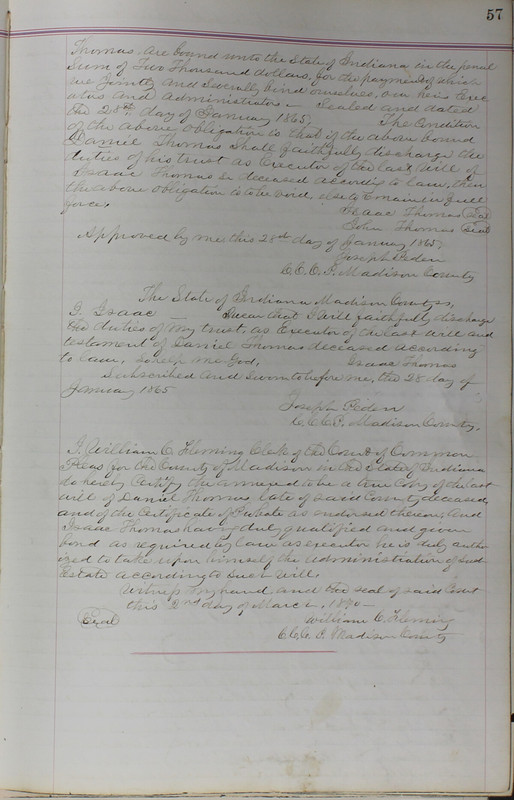 57
Thomas. Are bound unto the State of Indiana in the penal
Sum of Two Thousand dollars, for the payment of which
we Jointly and Severally bind ourselves, our heirs Exec
utors and Administrators – Sealed and dated
the 28th day of January 1865, The Condition
of the above obligation is that if the above bound
Thomas shall faithfully discharge the
duties of his trust as Executor of the last will of
Isaac Thomas Sr deceased according to law, then
the above obligation is to be void, else to remain in full
force,
Isaac Thomas Seal
John Thomas Seal
Approved by me this 28th day of January 1865,
Joseph Peden
C.C.C.P. Madison County
The State of Indiana Madison County ss,
I, Isaac — Swear that I will faithfully discharge
the duties of my trust, as Executor of the last will and
testament of Daniel Thomas deceased according
to law, so help me God, Isaac Thomas
Subscribed and Sworn to before me, the 28 day of
January 1865
Joseph Peden
C.C.C.P. Madison County.
I, William C. Fleming Clerk of the Court of Common
Pleas for the County of Madison in the State of Indiana
do hereby Certify the annexed to be a true Copy of the last
will of Daniel Thomas, late of said County deceased,
and of the Certificate of Probate as endorsed thereon; And
Isaac Thomas having duly qualified and given
bond as required by law as executor he is duly author
ized to take upon himself the Administration of said
Estate according to Such will.
Witness my hand and the seal of said Court
this 2nd day of March, 1870—
Seal William C. Fleming
C.C.C.P. Madison County